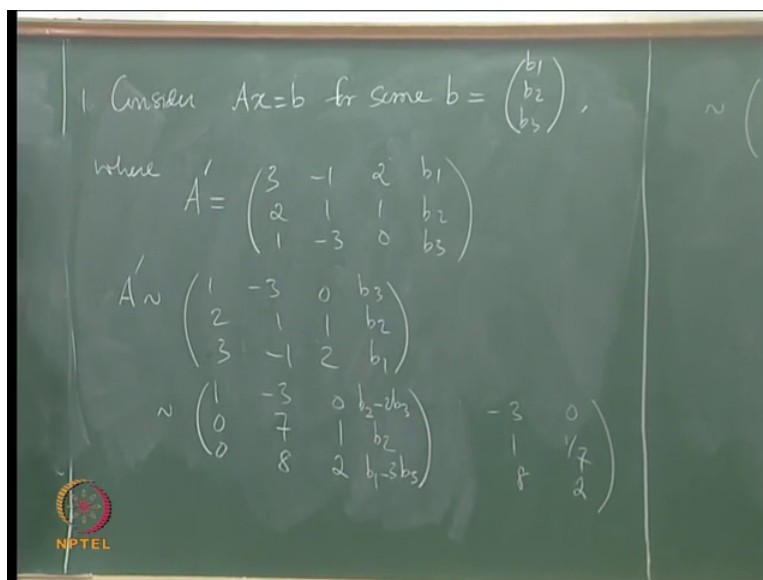 1. Consider Ax=b for some b = (b1 b2 b3),
where A' = (3 -1 2 b1
2 1 1 b2
1 -3 0 b3)
A' ~ (1 -3 0 b3
2 1 1 b2
3 -1 2 b1)
~ (1 -3 0 b2-2b3
0 7 1 b2
0 8 2 b1-3b3)
-3 0
1 1/7
8 2)
~ (
NPTEL